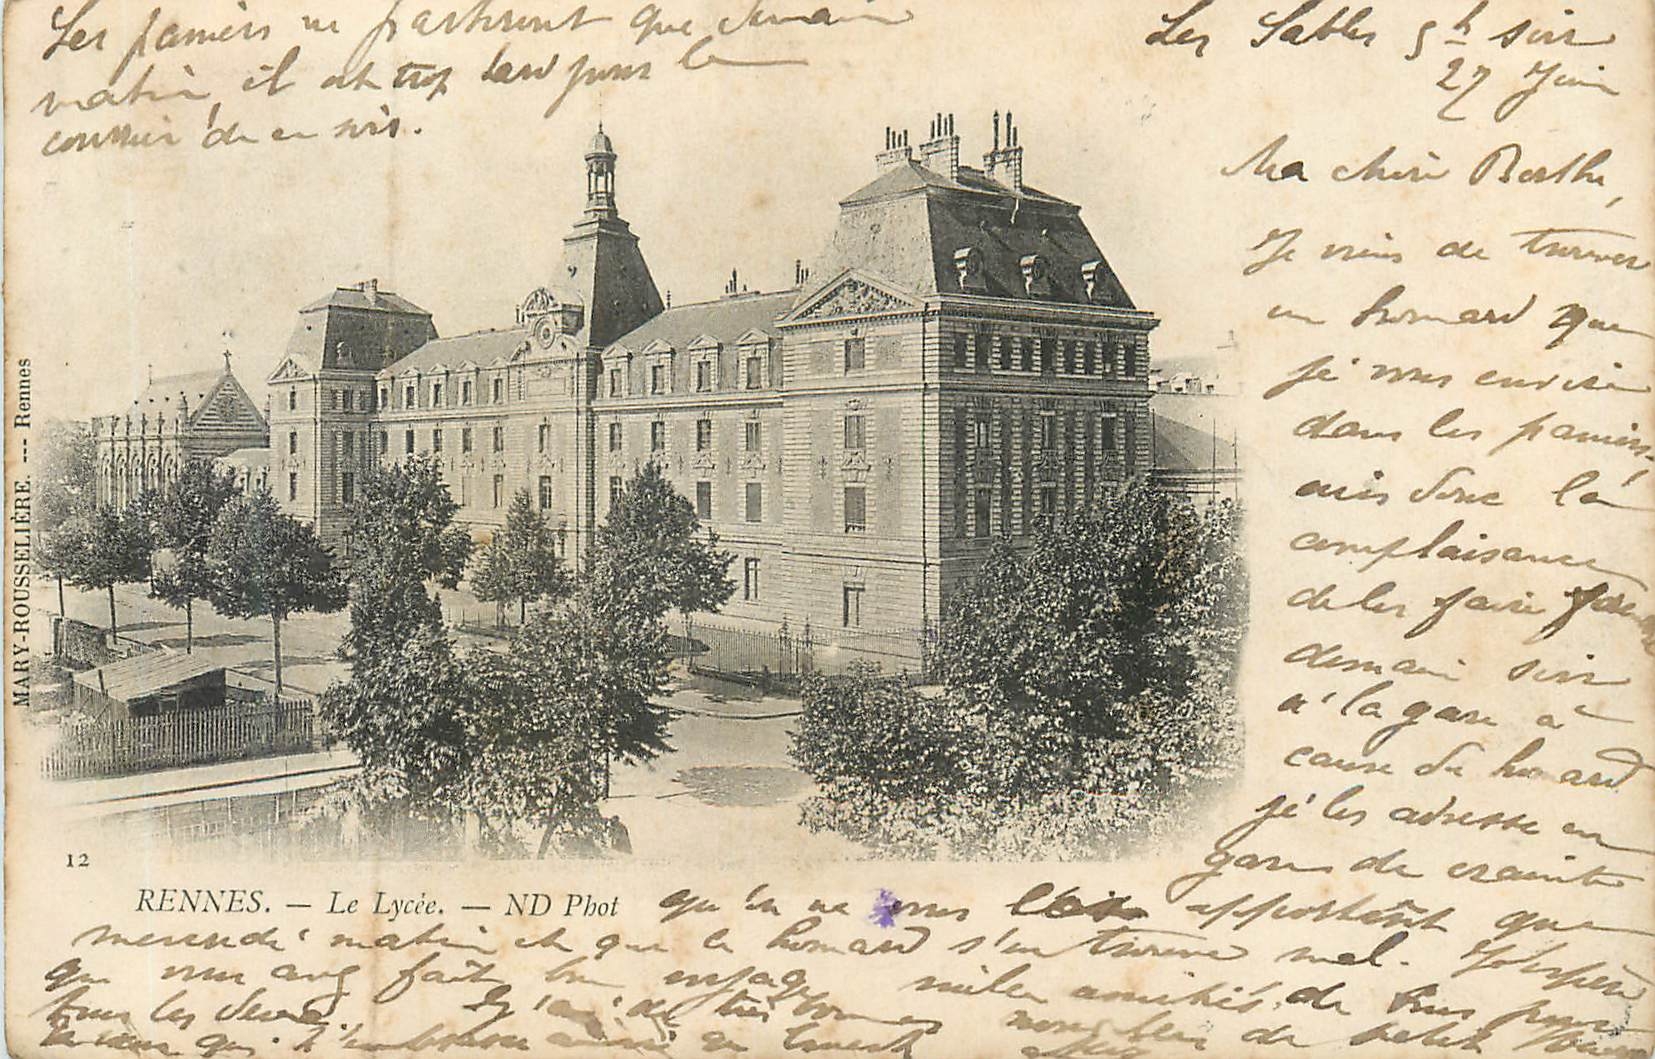 Les Sables 5 h soir
27 Juin
Ma chère Berthe,
Je viens de trouver
un homard que
je vous envoie
dans les paniers,
ais donc la
complaisance
de les faire
demain soir
à la gare à
cause du homard
je les adresse en
gare de crainte
qu'on ne vous apportent que
mercredi matin et que le homard s'en trouve mal. J'espère
que vous avez fait bon voyage milles amitiés de tous pour
tous les deux. J'ai de très bonnes nouvelles de petit
Les paniers ne partiront que demain
matin, il est trop tard pour le
courrier de ce soir.
MARY-ROUSSELIÈRE. --- Rennes
12
RENNES. — Le Lycée. — ND Phot